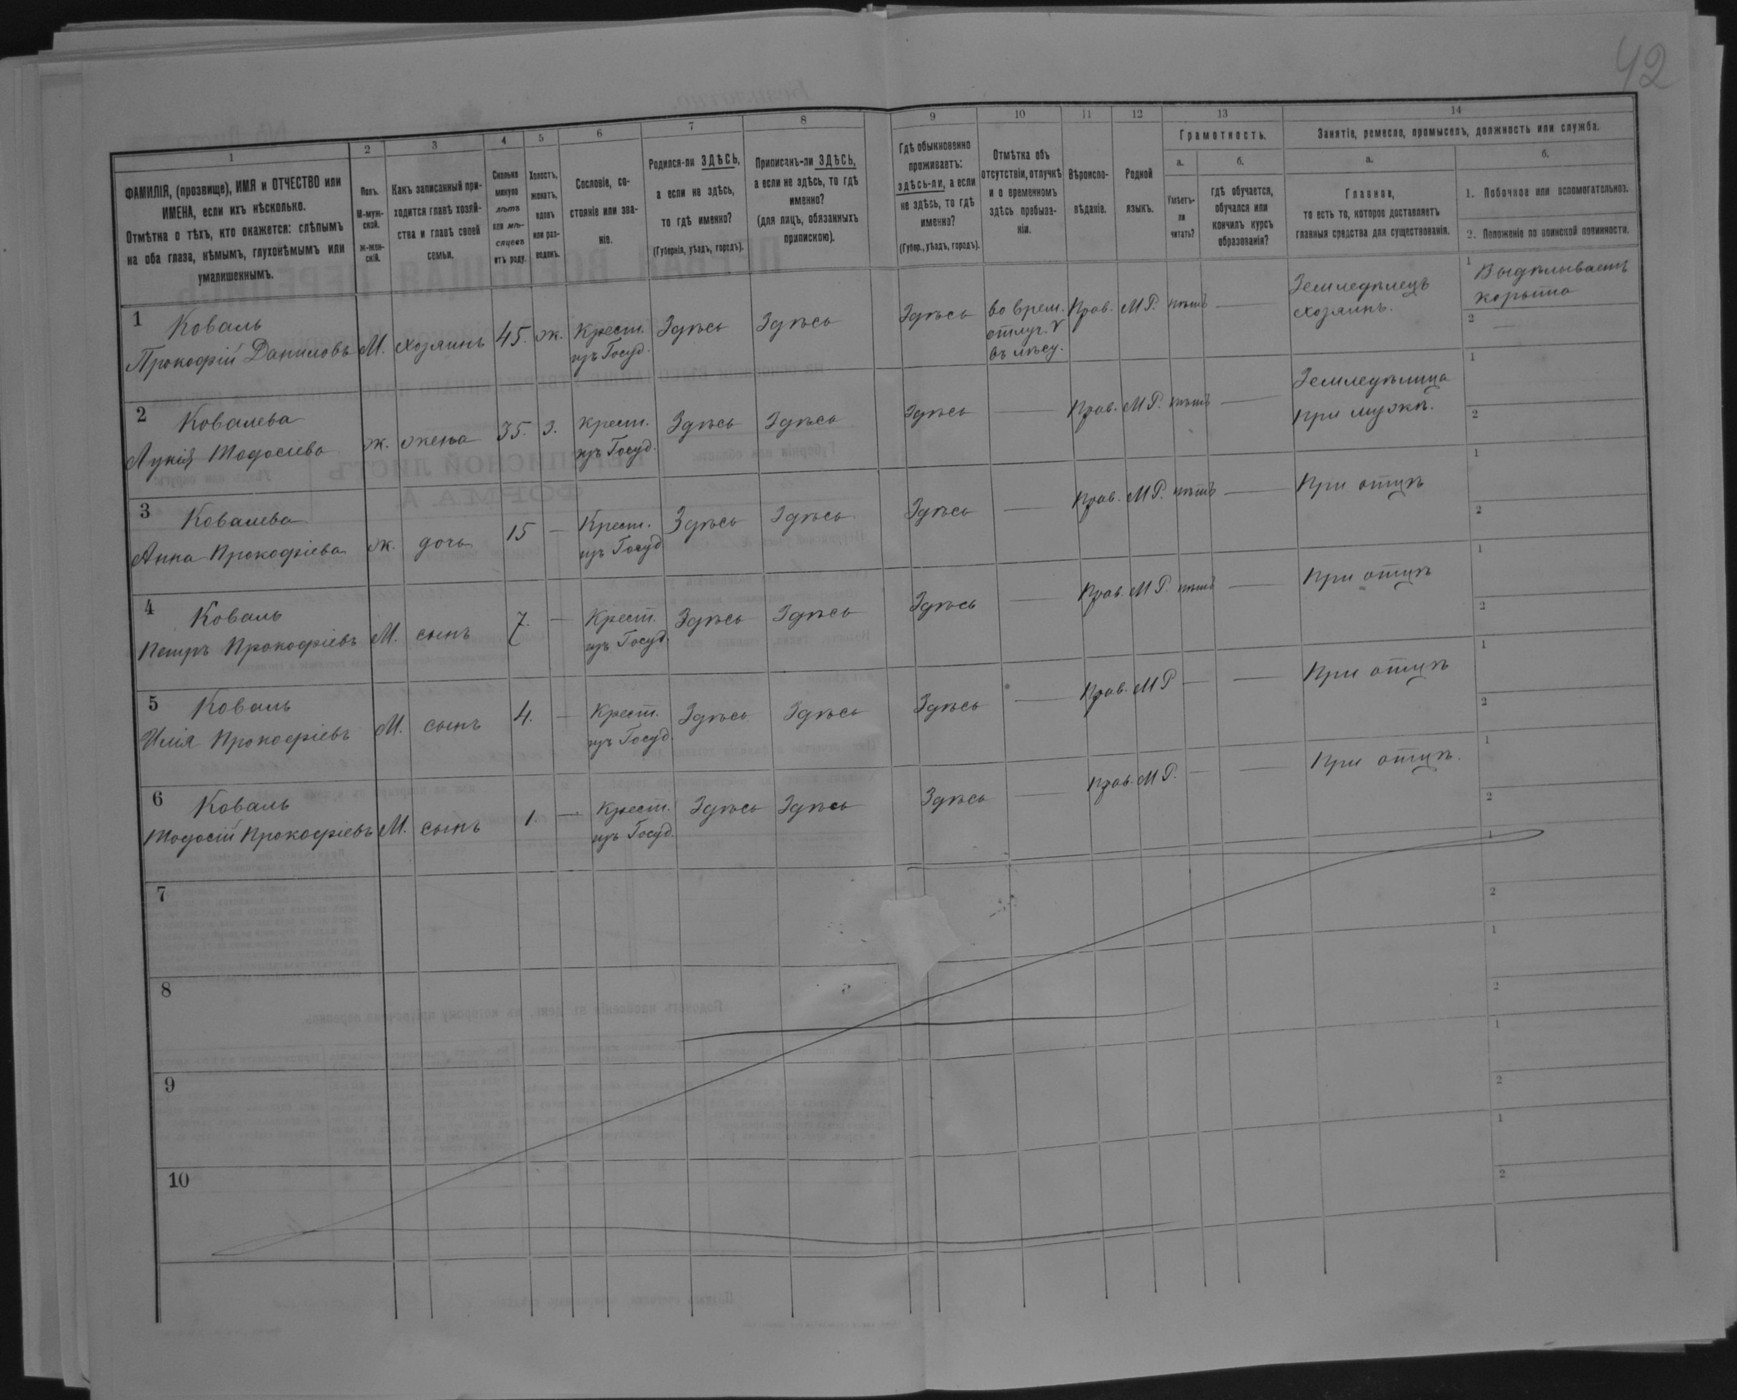 42
1 2 3 4 5 6 7 8 9 10 11 12 13 14
ФАМИЛІЯ, (прозвище), ИМЯ и ОТЧЕСТВО или
ИМЕНА, если ихъ нѣсколько.
Отмѣтка о тѣхъ, кто окажется: слѣпымъ
на оба глаза, нѣмымъ, глухонѣмымъ или
умалишеннымъ.
Полъ.
М-муж-
ской.
Ж-жен-
скій.
Какъ записанный при-
ходится главѣ хозяй-
ства и главѣ своей
семьи.
Сколько
минуло
лѣтъ
или мѣ-
сяцевъ
отъ роду.
Холостъ,
женатъ,
вдовъ
или раз-
веденъ.
Сословіе, со-
стояніе или зва-
ніе.
Родился-ли ЗДѢСЬ,
а если не здѣсь,
то гдѣ именно?
(Губернія, уѣздъ, городъ).
Приписанъ-ли ЗДѢСЬ,
а если не здѣсь, то гдѣ
именно?
(для лицъ, обязанныхъ
припискою).
Гдѣ обыкновенно
проживаетъ:
здѣсь-ли, а если
не здѣсь, то гдѣ
именно?
(Губер., уѣздъ, городъ).
Отмѣтка объ
отсутствіи, отлучкѣ
и о временномъ
здѣсь пребыва-
ніи.
Вѣроиспо-
вѣданіе.
Родной
языкъ.
Грамотность.
а.
Умѣетъ-
ли
читать?
б.
гдѣ обучается,
обучался или
кончилъ курсъ
образованія?
Занятіе, ремесло, промыселъ, должность или служба.
а.
Главное,
то есть то, которое доставляетъ
главныя средства для существованія.
б.
1. Побочное или вспомогательное.
2. Положеніе по воинской повинности.
1 Коваль
Прокофій Даниловъ М. хозяинъ 45. ж. Крест. изъ Госуд. Здѣсь Здѣсь Здѣсь во врем. отлуч. въ лѣсу. Прав. М.Р. нѣтъ — Земледѣлецъ хозяинъ. 1 Выдѣлываетъ корыта 2 —
2 Ковалева
Ѳодосіева ж. жена 35. з. Крест. изъ Госуд. Здѣсь Здѣсь Здѣсь — Прав. М.Р. нѣтъ — Земледѣлица при мужѣ. 1 2
3 Ковалева
Анна Прокофіева ж. дочь 15 — Крест. изъ Госуд Здѣсь Здѣсь Здѣсь — Прав. М.Р. нѣтъ — При отцѣ 1 2
4 Коваль
Петръ Прокофіевъ М. сынъ 7. — Крест. изъ Госуд. Здѣсь Здѣсь Здѣсь — Прав. М.Р. нѣтъ — При отцѣ 1 2
5 Коваль
Илія Прокофіевъ М. сынъ 4. — Крест. изъ Госуд. Здѣсь Здѣсь Здѣсь — Прав. М.Р — — При отцѣ 1 2
6 Коваль
Тодосій Прокофіевъ М. сынъ 1. — Крест. изъ Госуд. Здѣсь Здѣсь Здѣсь — Прав. М.Р. — — При отцѣ. 1 2
7 1 2
8 1 2
9 1 2
10 1 2